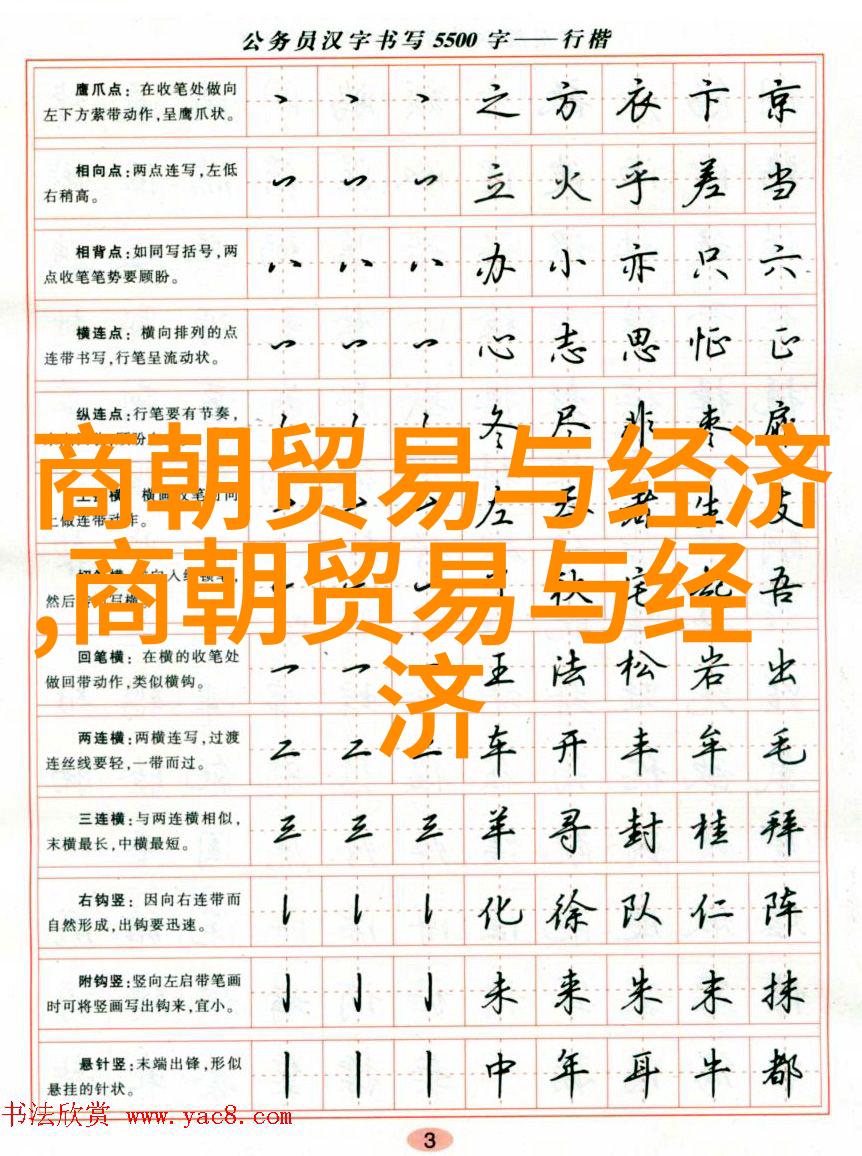 公务员汉字书写 5500 字——行楷
鹰爪点：在收笔处做向
左下方萦带动作，呈鹰爪状。
之 方 衣 卞 京
相向点：两点连写，左低
右稍高。
立 火 乎 差 当
相背点：如同写括号，两
点收笔笔势要顾盼。
办 小 亦 只 六
横连点：横向排列的点
连带书写，行笔呈流动状。
心 志 思 怔 正
纵连点：行笔要有节奏，
冬 尽 非 枣
商朝贸易与经济
,商朝贸易与经
济
左
上做连带动作。
然后
吾
回笔横：在横的收笔处
做回带动作，类似横钩。
王 法 松 岩 出
两连横：两横连写，过渡
连丝线要轻，一带而过。
二 二 二 车 开 丰 牟 毛
三连横：与两连横相似，
末横最长，中横最短。
三 三 三 羊 寻 封 桂 拜
右钩竖：因向右连带而
自然形成，出钩要迅速。
化 徐 队 仁 阵
附钩竖：竖向左启带笔画
时可将竖画写出钩来，宜小。
未 来 朱 末 抹
悬针竖：末端出锋，形似
悬挂的针状。
中 年 耳 牛 都
书法欣赏 www.yac8.com
3